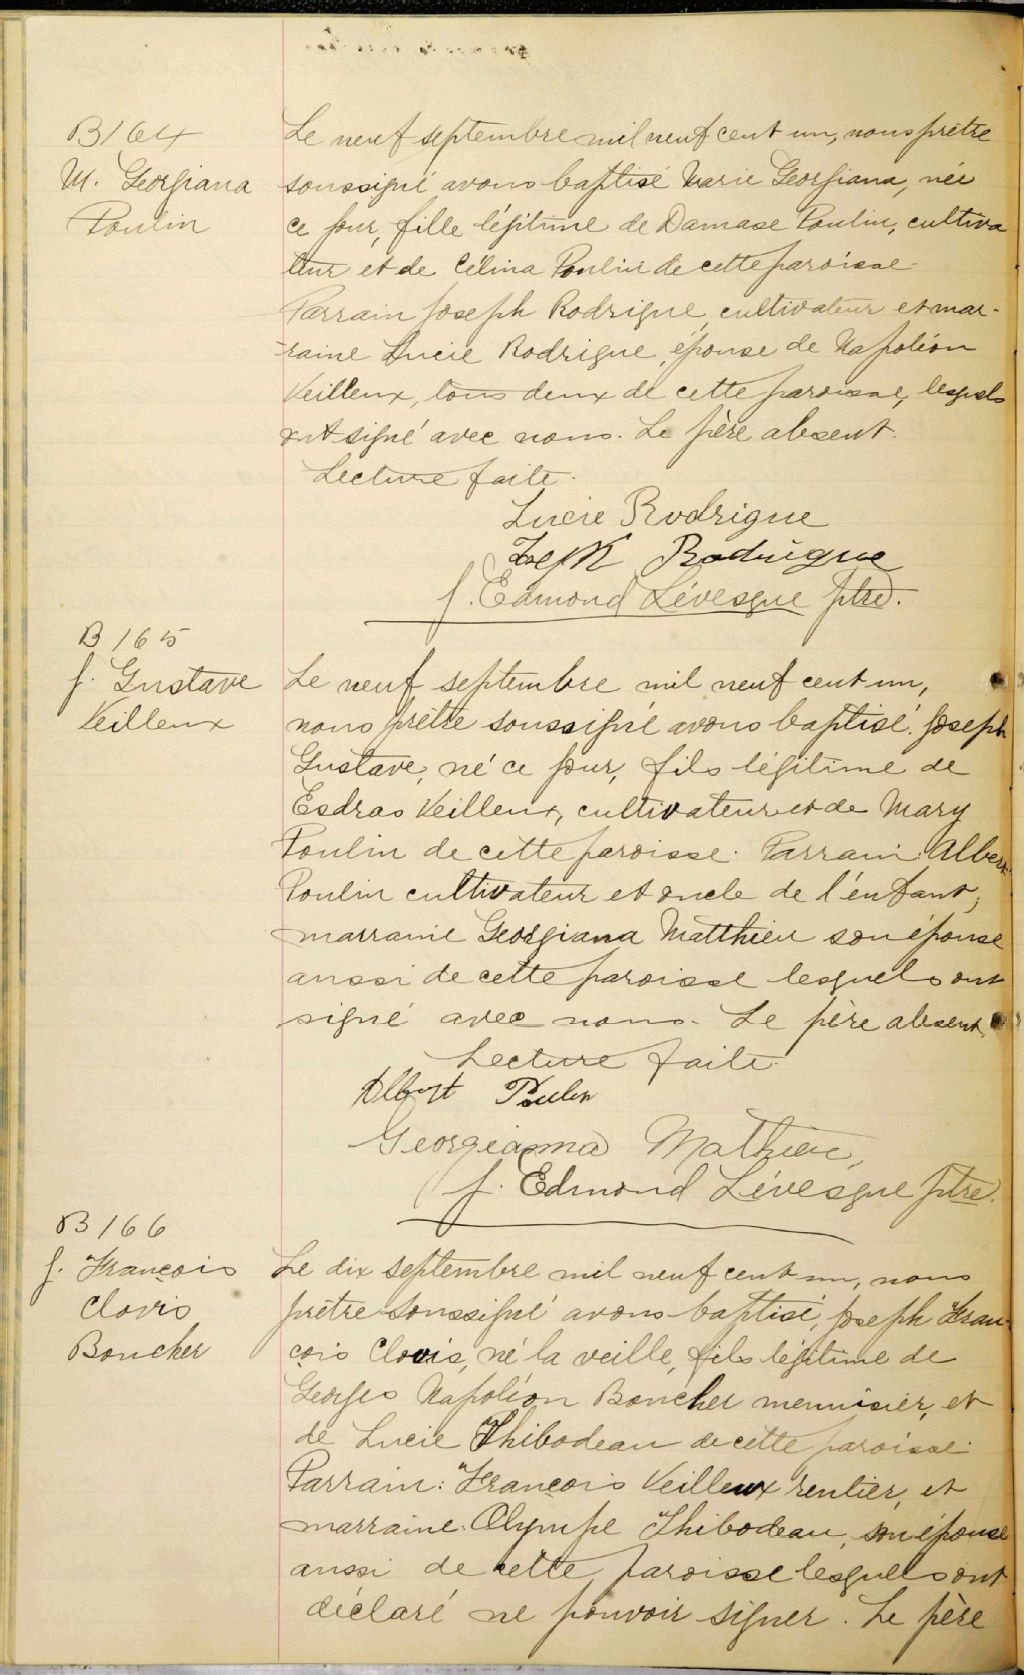 B 164
M. Georgiana
Poulin
Le neuf septembre mil neuf cent un, nous prêtre
soussigné avons baptisé Marie Georgiana, née
ce jour, fille légitime de Damase Poulin, cultiva
teur et de Célina Poulin de cette paroisse.
Parrain Joseph Rodrigue, cultivateur et mar-
raine Lucie Rodrigue, épouse de Napoléon
Veilleux, tous deux de cette paroisse, lesquels
ont signé avec nous. Le père absent.
Lecture faite.
Lucie Rodrigue
Rodrigue
J. Edmond Lévesque ptre.
B 165
J. Gustave
Veilleux
Le neuf septembre mil neuf cent un,
nous prêtre soussigné avons baptisé Joseph
Gustave, né ce jour, fils légitime de
Esdras Veilleux, cultivateur et de Mary
Poulin de cette paroisse. Parrain: Albert
Poulin cultivateur et oncle de l'enfant,
marraine Georgiana Matthieu son épouse
aussi de cette paroisse lesquels ont
signé avec nous. Le père absent.
Lecture faite.
Albert Poulin
Georgianna Mathieu,
J. Edmond Lévesque ptre.
B 166
J. François
Clovis
Boucher
Le dix septembre mil neuf cent un, nous
prêtre soussigné avons baptisé, Joseph Fran-
çois Clovis, né la veille, fils légitime de
Georges Napoléon Boucher menuisier, et
de Lucie Thibodeau de cette paroisse.
Parrain: François Veilleux rentier, et
marraine Olympe Thibodeau, son épouse
aussi de cette paroisse lesquels ont
déclaré ne pouvoir signer. Le père